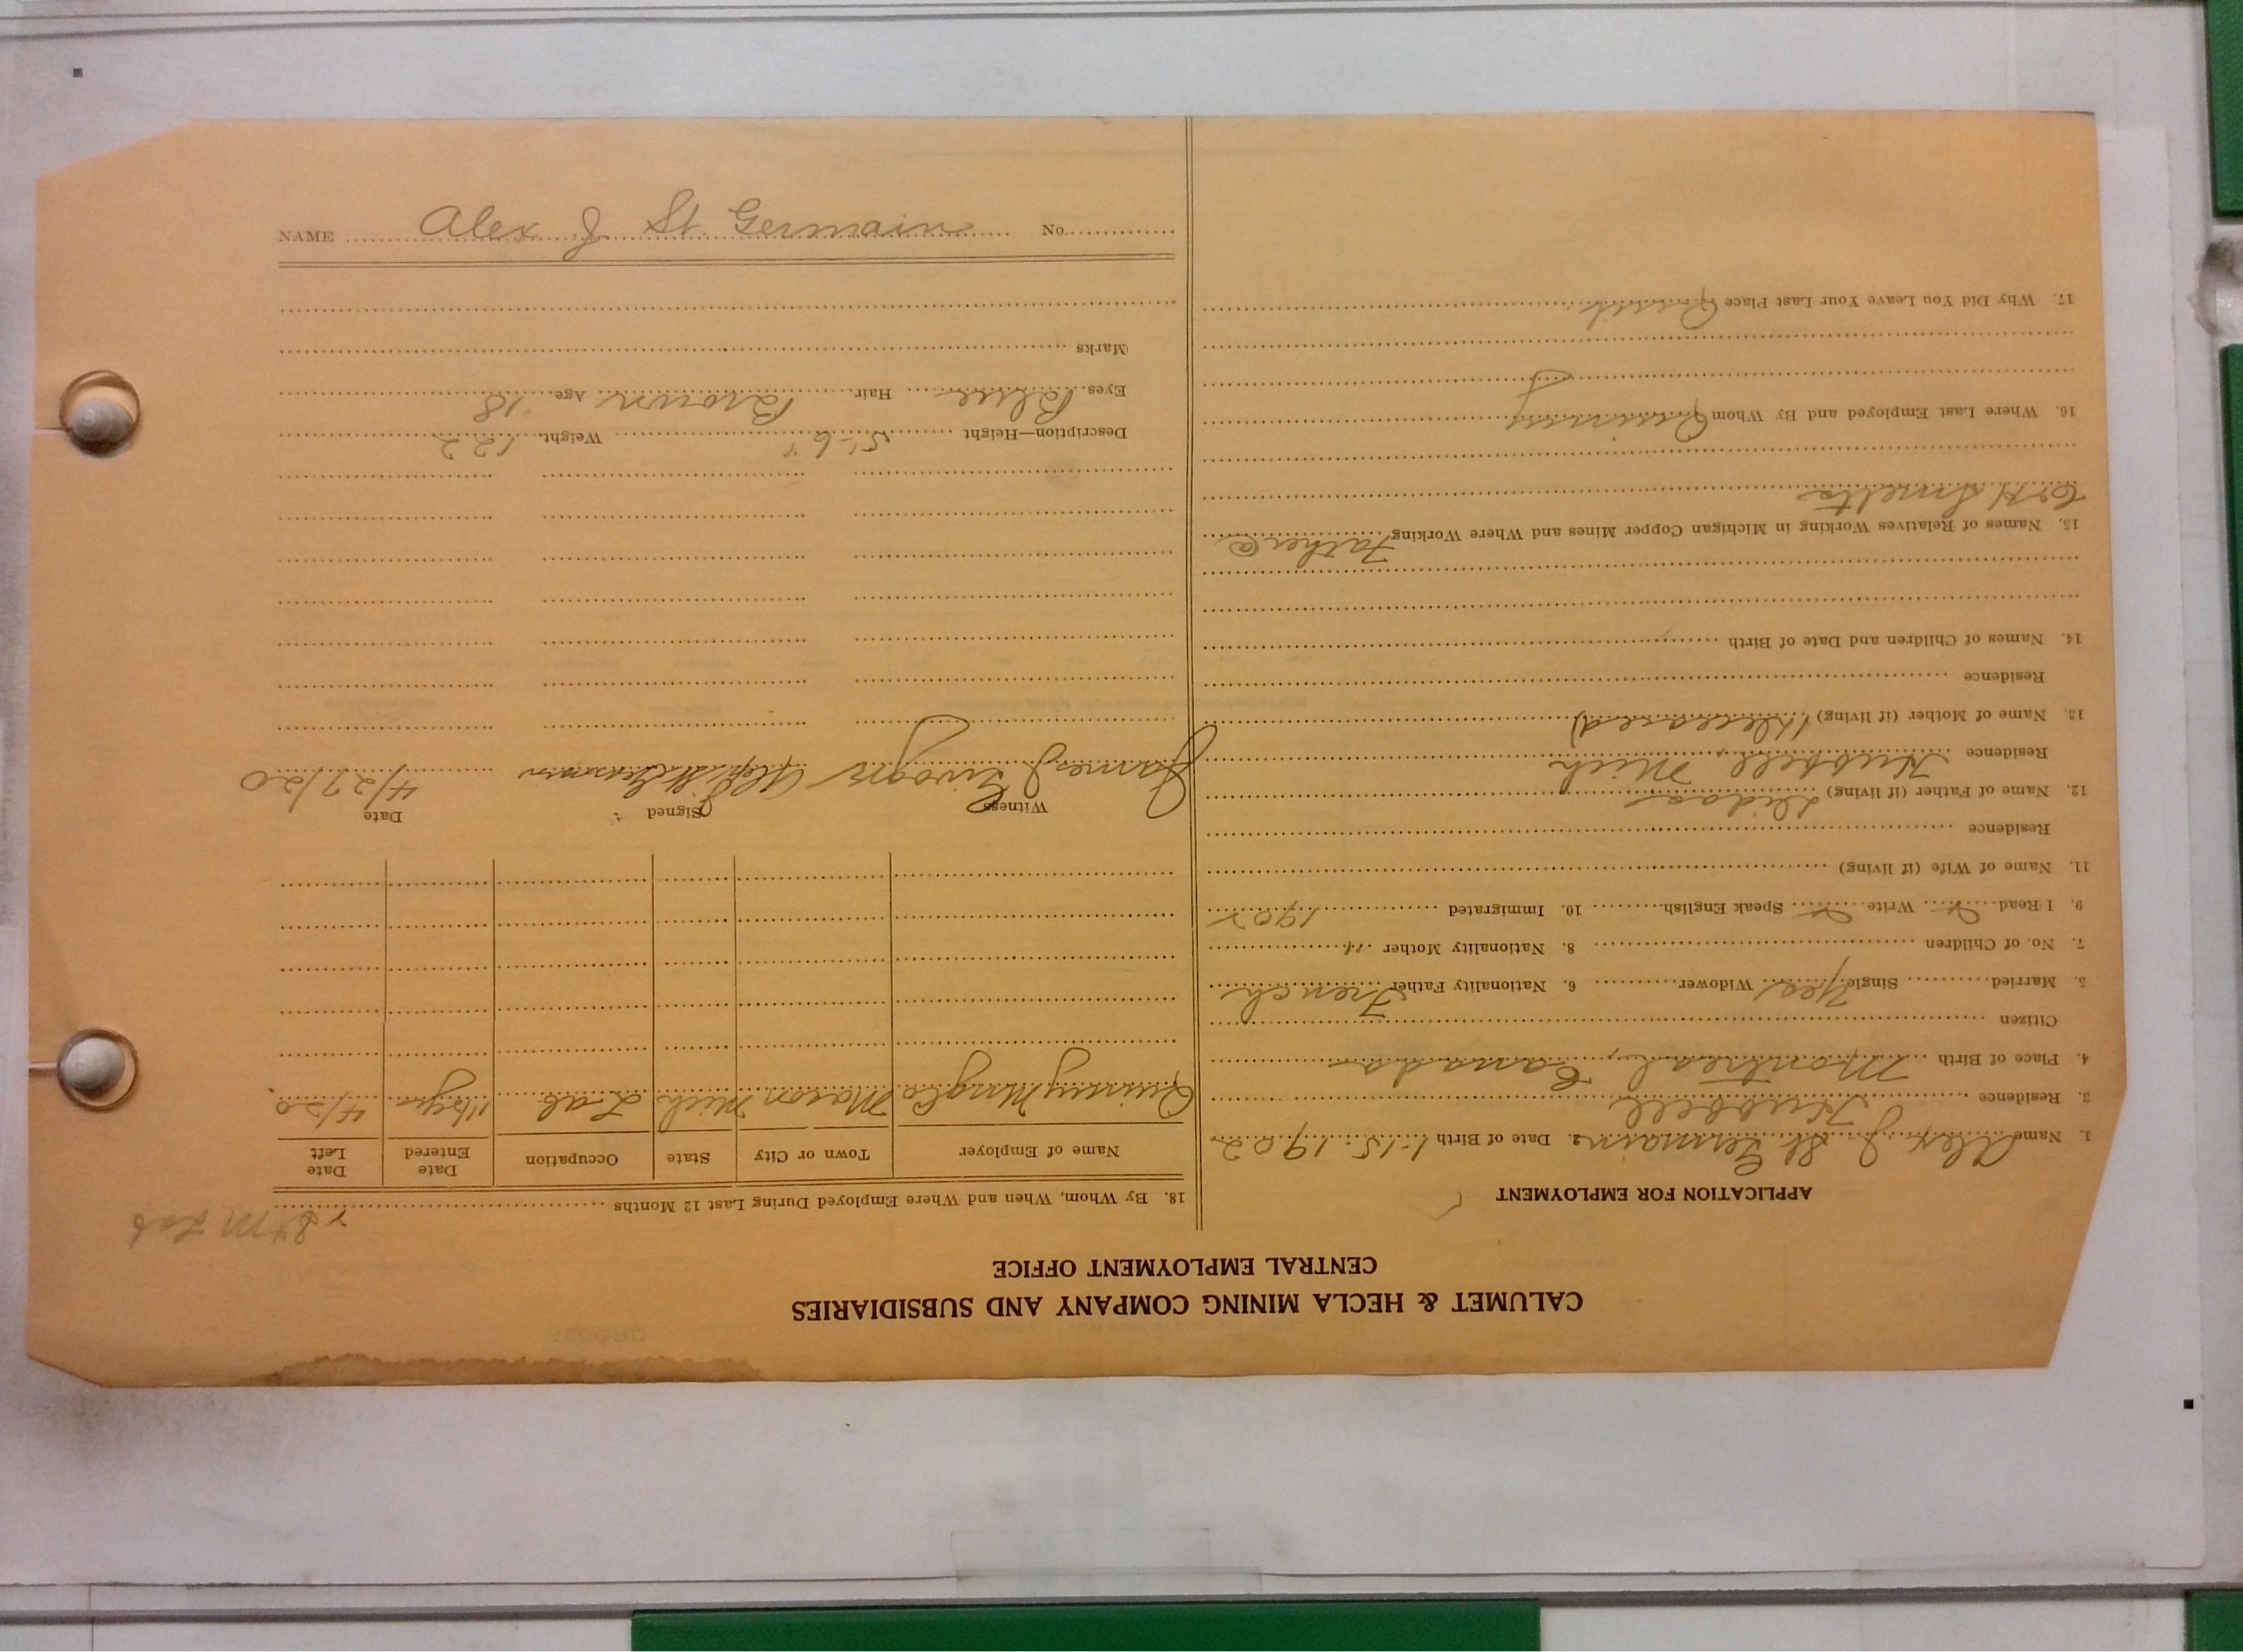 CALUMET & HECLA MINING COMPANY AND SUBSIDIARIES
CENTRAL EMPLOYMENT OFFICE
APPLICATION FOR EMPLOYMENT
1. Name Alex J St. Germain 2. Date of Birth 1-15-1902
3. Residence Hubbell
4. Place of Birth Montreal, Canada
Citizen
5. Married Single Yes Widower 6. Nationality Father French
7. No. of Children 8. Nationality Mother "
9. I Read Write Speak English 10. Immigrated 1902
11. Name of Wife (if living)
Residence
12. Name of Father (if living)
Residence Hubbell, Mich
13. Name of Mother (if living) (deceased)
Residence
14. Names of Children and Date of Birth
15. Names of Relatives Working in Michigan Copper Mines and Where Working Father @
C&H Smelter
16. Where Last Employed and By Whom Quincy
17. Why Did You Leave Your Last Place Quit
S&M Lab
18. By Whom, When and Where Employed During Last 12 Months
Name of Employer Town or City State Occupation Date Entered Date Left
Quincy Mng Co Mason Mich Lab 4/20
Witness Signed Date
James J 4/27/20
Description—Height 5'-6" Weight 122
Eyes Blue Hair Brown Age 18
Marks
NAME Alex J St. Germain No.